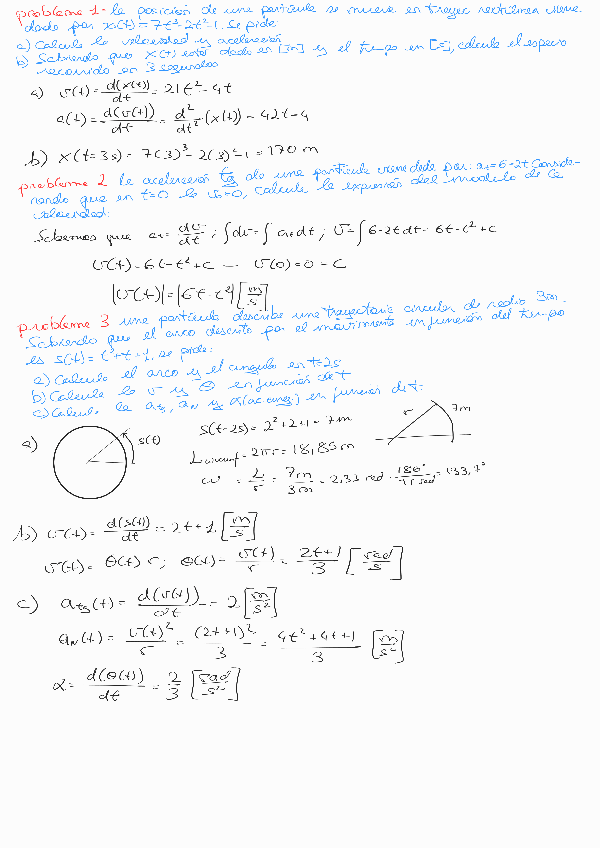 problema 1- la posición de una partícula se mueve en trayec rectilínea viene
dado por x(t) = 7t³-2t²-1. Se pide:
a) Calcula la velocidad y aceleración
b) Sabiendo que x(t) está dado en [m] y el tiempo en [s], calcula el espacio
recorrido en 3 segundos
a) v(t) = d(x(t))/dt = 21t² - 4t
a(t) = d(v(t))/dt = d²/dt² (x(t)) = 42t-4
b) x(t=3s) = 7(3)³ - 2(3)² - 1 = 170 m
problema 2 la aceleración tg de una partícula viene dada por: at = 6-2t Conside-
rando que en t=0 la v0=0, calcula la expresión del modulo de la
velocidad:
Sabemos que at = dv/dt ; ∫dv = ∫at dt ; v = ∫6-2t dt = 6t - t² + c
v(t) = 6t - t² + c — v(0) = 0 = c
|v(t)| = |6t - t²| [m/s]
problema 3 una partícula describe una trayectoria circular de radio 3m.
Sabiendo que el arco descrito por el movimiento en función del tiempo
es s(t) = t² + t + 1, se pide:
a) Calcula el arco y el angulo en t=2s
b) Calcula la v y θ en función de t
c) Calcula la atg, aN y α (ac ang) en función de t.
a) s(t) s(t=2s) = 2² + 2 + 1 = 7m r 7m
Lcircunf = 2πr = 18,85 m
w = L/r = 7m/3m = 2,33 rad · 180°/π rad = 133,7°
b) v(t) = d(s(t))/dt = 2t + 1 [m/s]
v(t) = θ(t) · r ; θ(t) = v(t)/r = 2t+1/3 [rad/s]
c) atg(t) = d(v(t))/dt = 2 [m/s²]
aN(t) = v(t)²/r = (2t+1)²/3 = 4t²+4t+1/3 [m/s²]
α = d(θ(t))/dt = 2/3 [rad/s²]